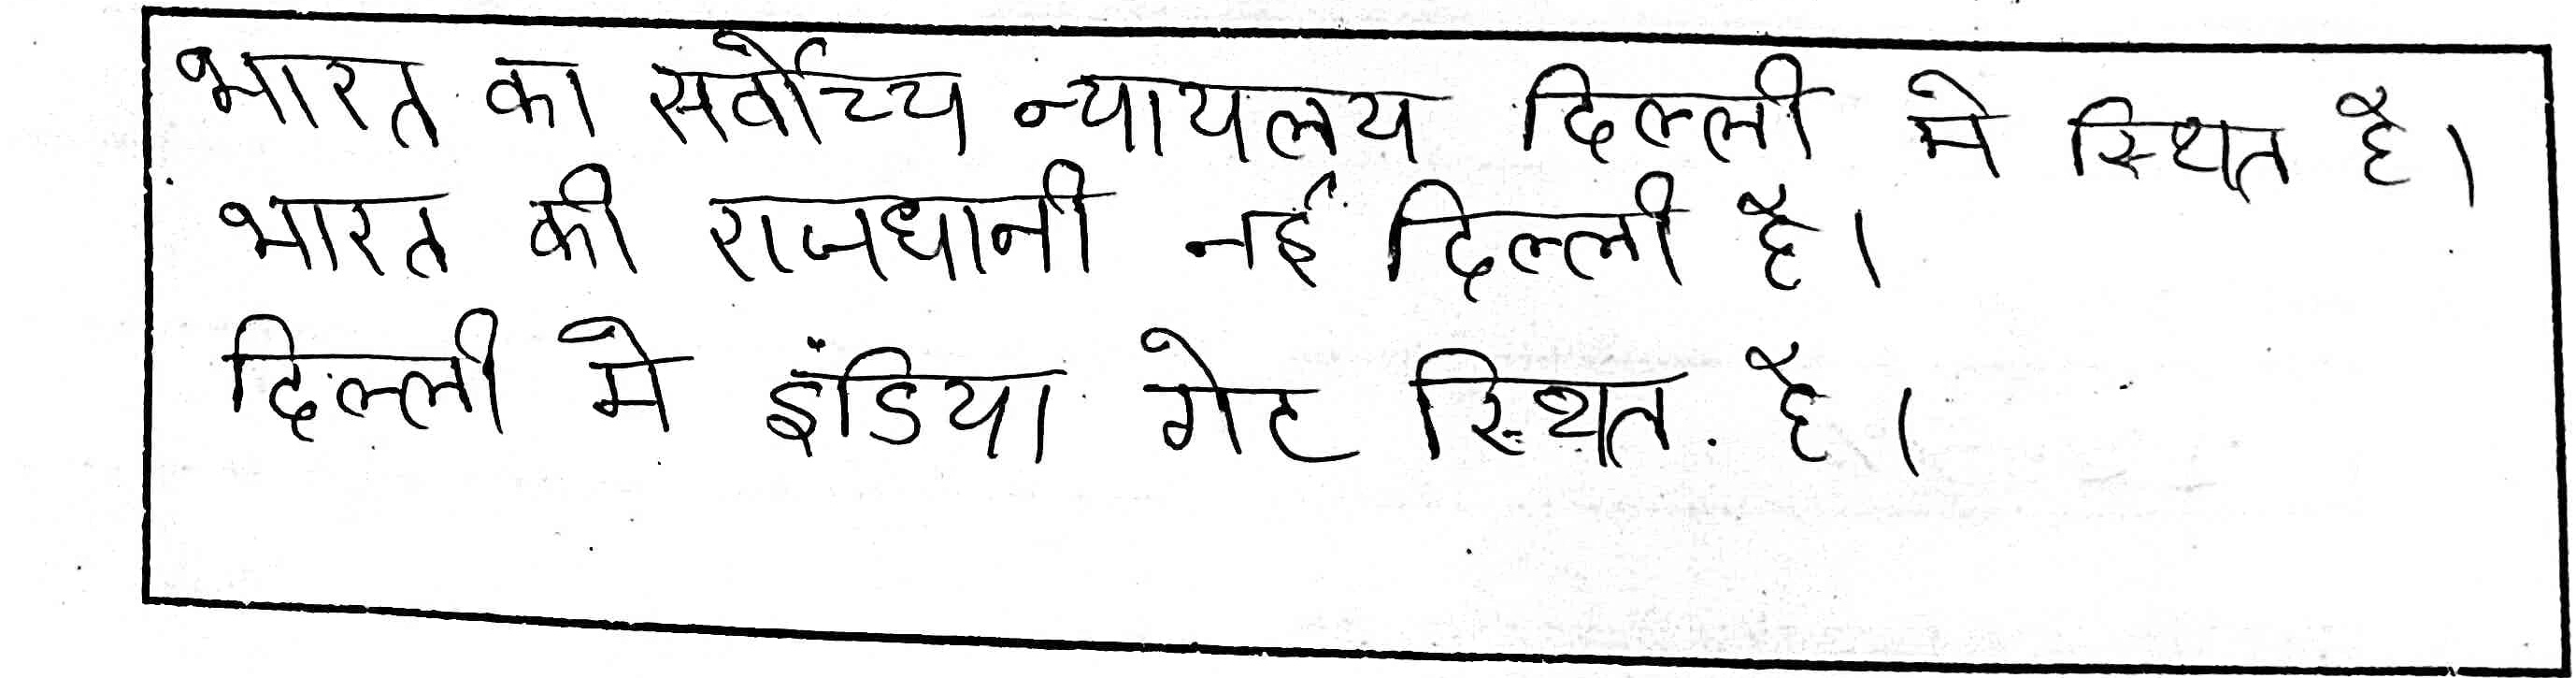 भारत का सर्वोच्य न्यायलय दिल्ली मे स्थित है।
भारत की राजधानी नई दिल्ली है।
दिल्ली मे इंडिया गेट स्थित है।